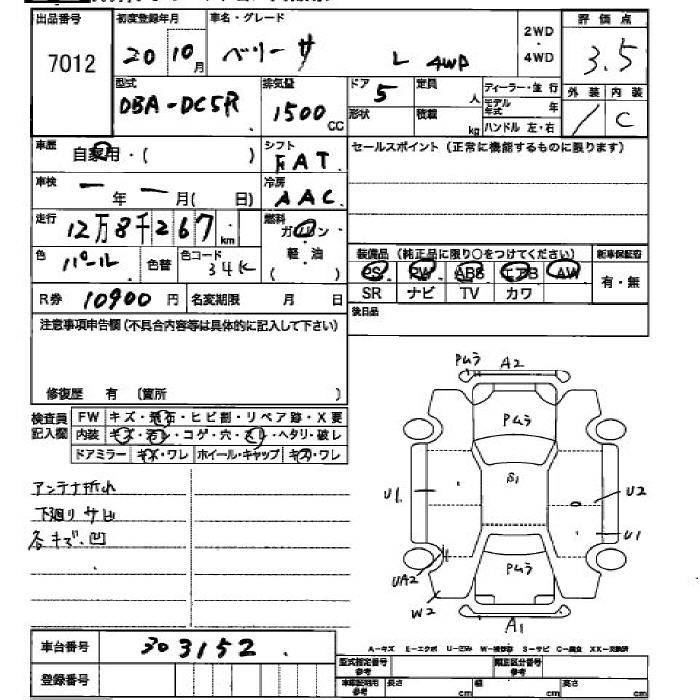 出品番号 初度登録年月 車名・グレード 2WD 評価点
7012 20 10月 ベリーサ L 4WD ・4WD 3.5
型式 排気量 ドア 定員 ディーラー・並行 外装 内装
DBA-DC5R 1500 CC 5 人 モデル年式 年 / C
形状 積載 kg ハンドル 左・右
車歴 自家用・( ) シフト FAT セールスポイント(正常に機能するものに限ります)
車検 一年一月( 日) 冷房 AAC
走行 12万8千267km 燃料 ガソリン・
色 パール 色替 色コード 34K 軽・油 ( ) 装備品(純正品に限り○をつけてください) 新車保証書
PS PW ABS エアB AW 有・無
R券 10900円 名変期限 月 日 SR ナビ TV カワ
注意事項申告欄(不具合内容等は具体的に記入して下さい) 後日品
修復歴 有 〔箇所 〕
検査員記入欄 FW キズ・飛石・ヒビ割・リペア跡・X要
内装 キズ・汚レ・コゲ・穴・スレ・ヘタリ・破レ
ドアミラー キズ・ワレ ホイール・キャップ キズ・ワレ
アンテナ折れ
下廻りサビ
各キズ、凹
Pムラ A2
Pムラ
S1
U1 U2
U1
Pムラ
UA2
W2
A1
車台番号 303152
登録番号
A-キズ E-エクボ U-凹み W-補修跡 S-サビ C-腐食 XX-交換済
型式指定番号 参考 類別区分番号 参考
車庫証明用 参考 長さ cm 幅 cm 高さ cm